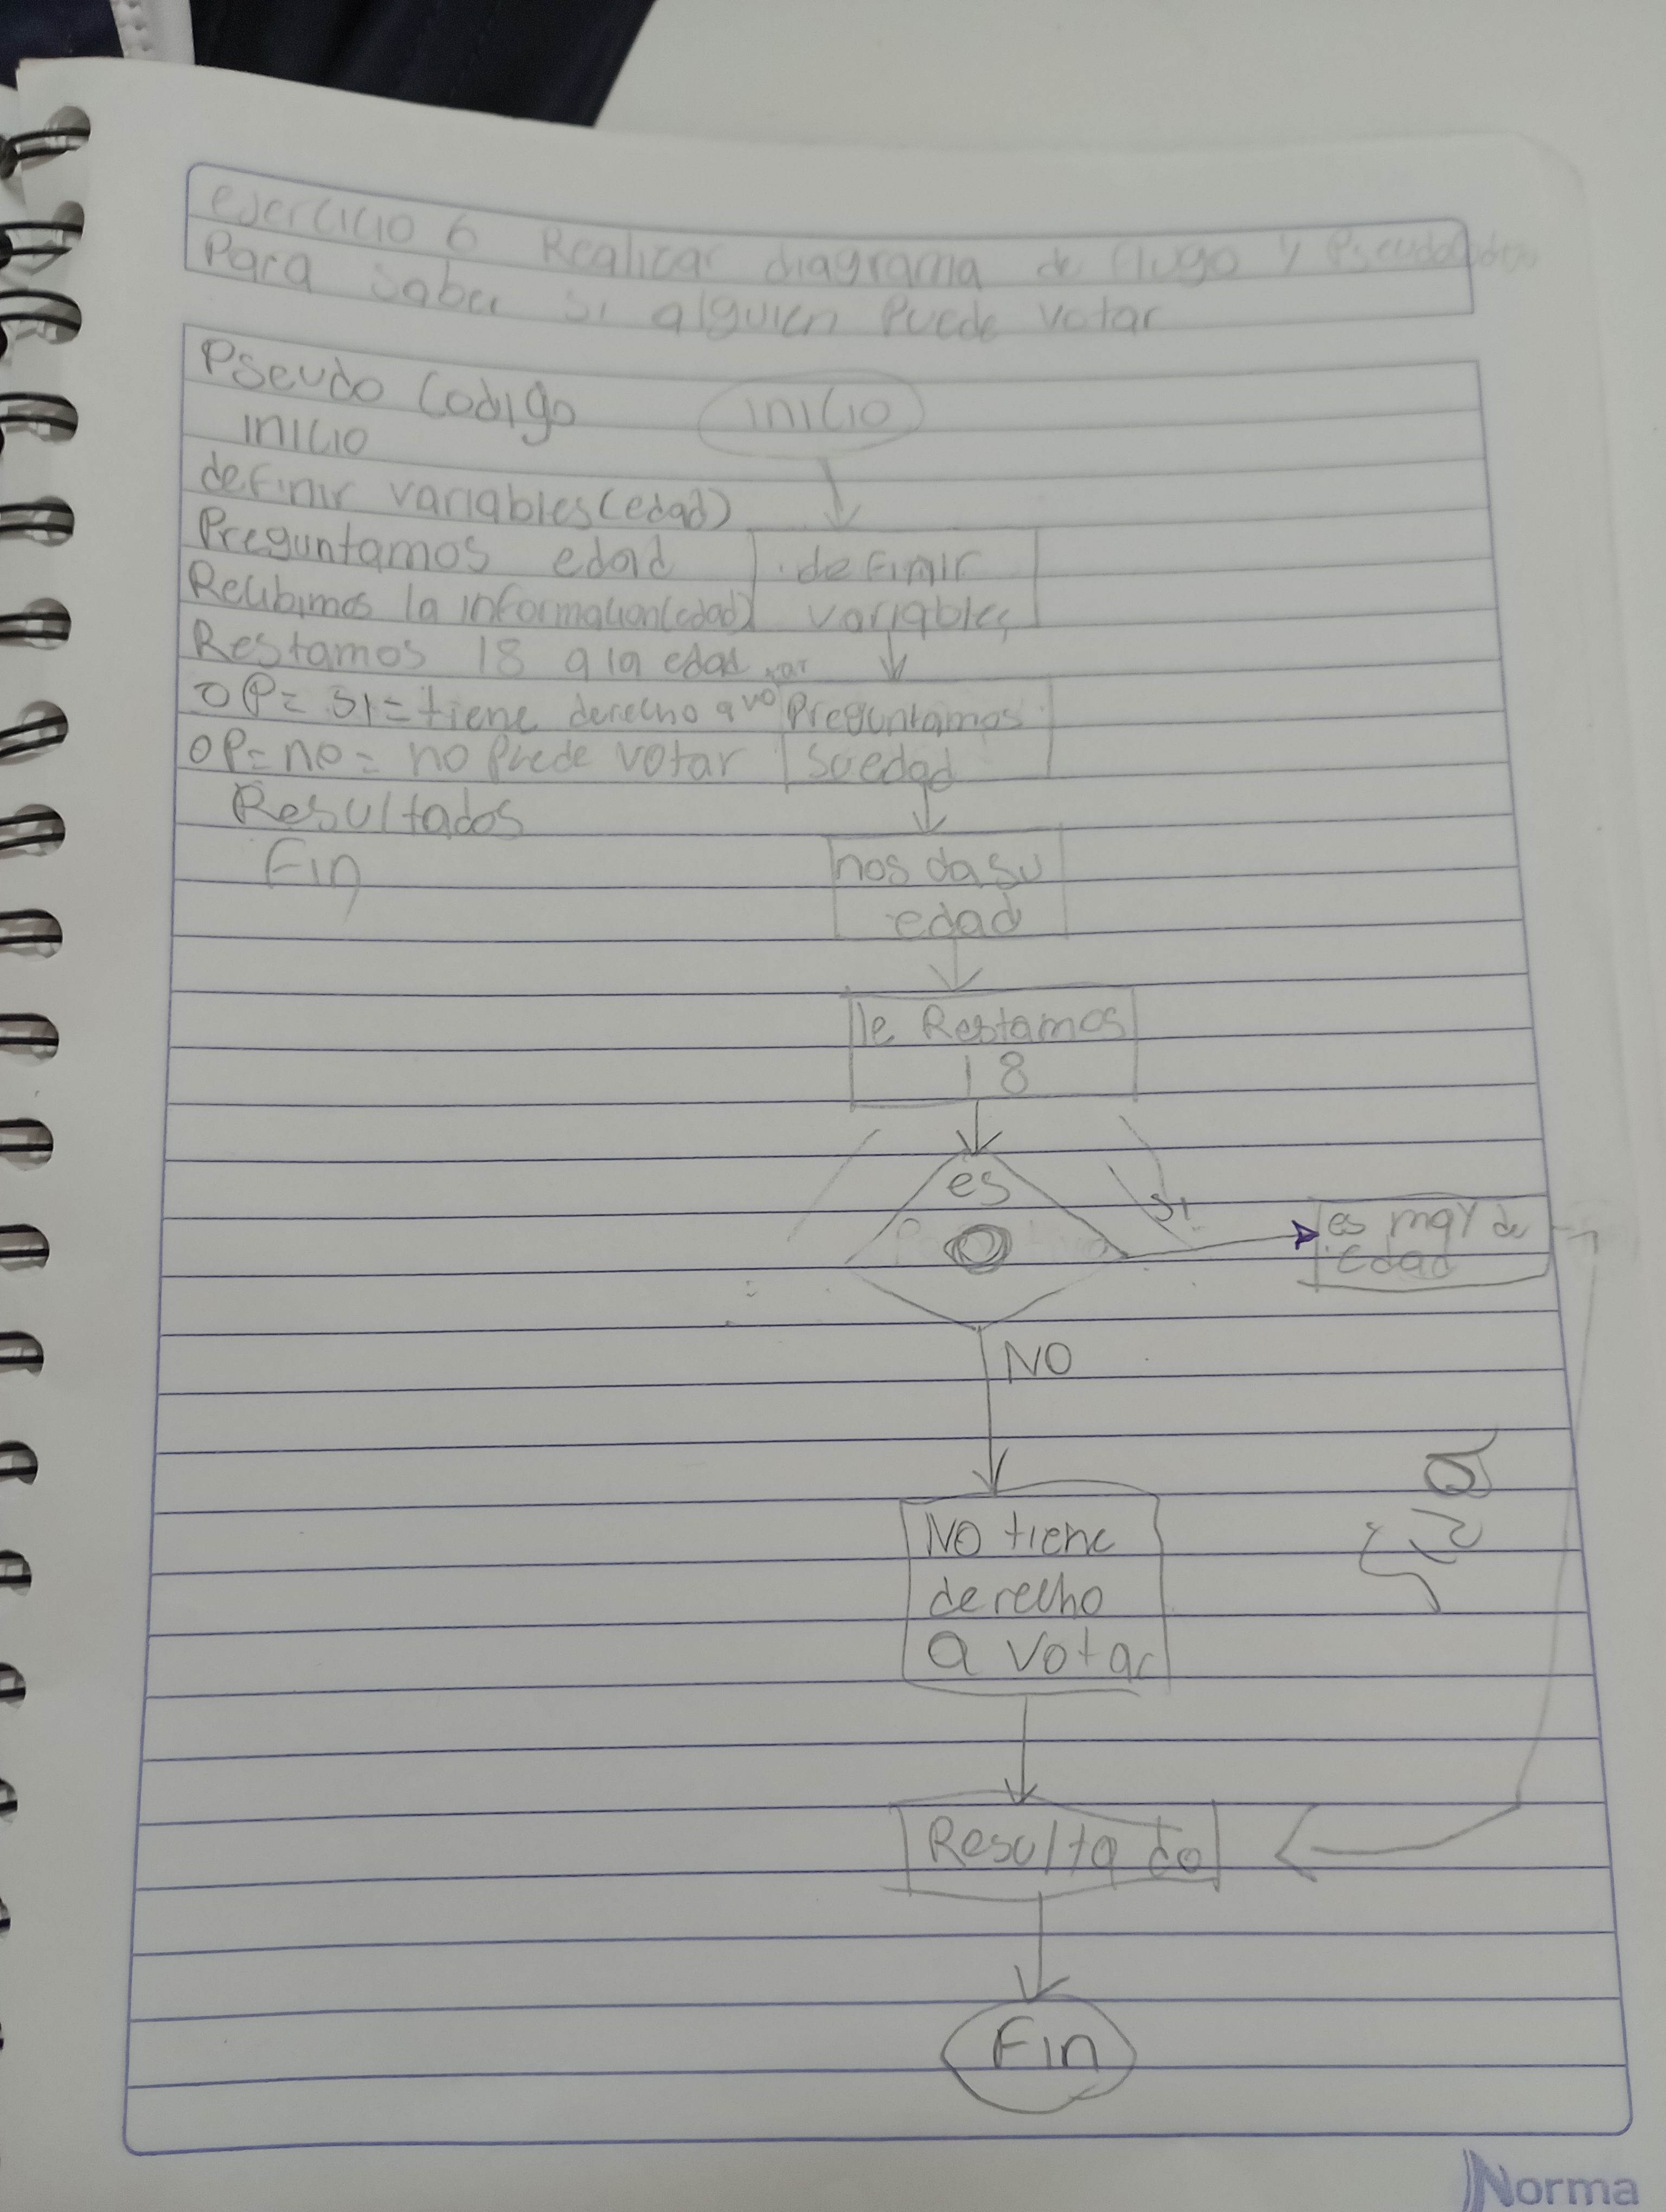 ejercicio 6 Realizar diagrama de flugo y
Para saber si alguien Puede votar
Pseudo Codigo
inicio
definir variables(edad)
Preguntamos edad
Recibimos la informacion(edad)
Restamos 18 a la edad
OP= si= tiene derecho a votar
OP= no = no Puede votar
Resultados
Fin
inicio
definir
variables
Preguntamos
su edad
nos da su
edad
le Restamos
18
es
O
si
es may de
edad
NO
NO tiene
derecho
a votar
Resultado
Fin
Norma